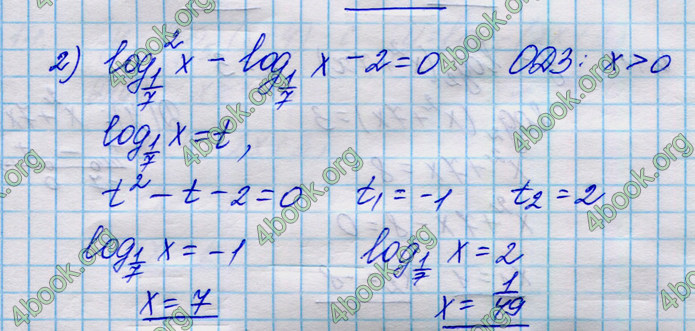 2) log²_{1/7} x - log_{1/7} x - 2 = 0   ОДЗ: x > 0
log_{1/7} x = t,
t² - t - 2 = 0   t₁ = -1   t₂ = 2
log_{1/7} x = -1   log_{1/7} x = 2
x = 7   x = 1/49
4book.org